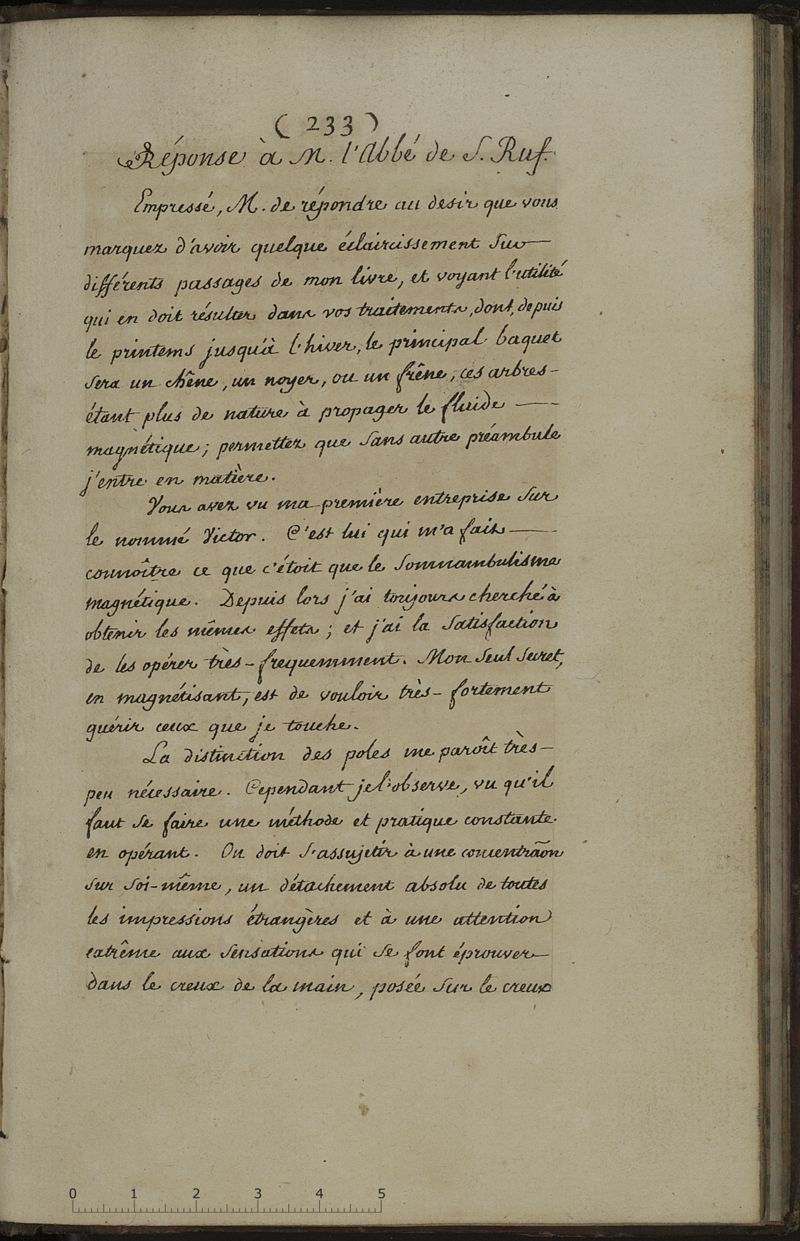 (233)
Réponse à M. l'Abbé de S. Ruf.
Empressé, M. de répondre au desir que vous
marquez d'avoir quelque éclaircissement sur
différents passages de mon livre, et voyant l'utilité
qui en doit résulter dans vos traitements, dont, depuis
le printems jusqu'à l'hiver, le principal baquet
sera un chêne, un noyer, ou un frêne, ces arbres
étant plus de nature à propager le fluide
magnétique; permettez que sans autre préambule
j'entre en matière.
Vous avez vu ma première entreprise sur
le nommé Victor. C'est lui qui m'a fait
connoître ce que c'étoit que le Somnambulisme
magnétique. Depuis lors j'ai toujours cherché à
obtenir les mêmes effets; et j'ai la satisfaction
de les opérer très-frequemment. Mon seul secret,
en magnétisant, est de vouloir très-fortement
guérir ceux que je touche.
La distinction des poles me paroît très-
peu nécessaire. Cependant je l'observe, vu qu'il
faut se faire une méthode et pratique constante
en opérant. On doit s'assujetir à une concentraõn
sur soi-même, un détachement absolu de toutes
les impressions étrangères et à une attention
extrême aux sensations qui se font éprouver
dans le creux de la main, posée sur le creux
0 1 2 3 4 5